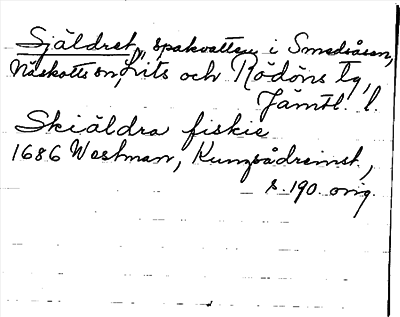 Själdret, spakvatten i Smedsåsen,
Näskotts sn, Lits och Rödöns tg,
Jämtl. l.
Skiäldra fiskie
1686 Westman, Kungsådreinst.,
s. 190 orig.